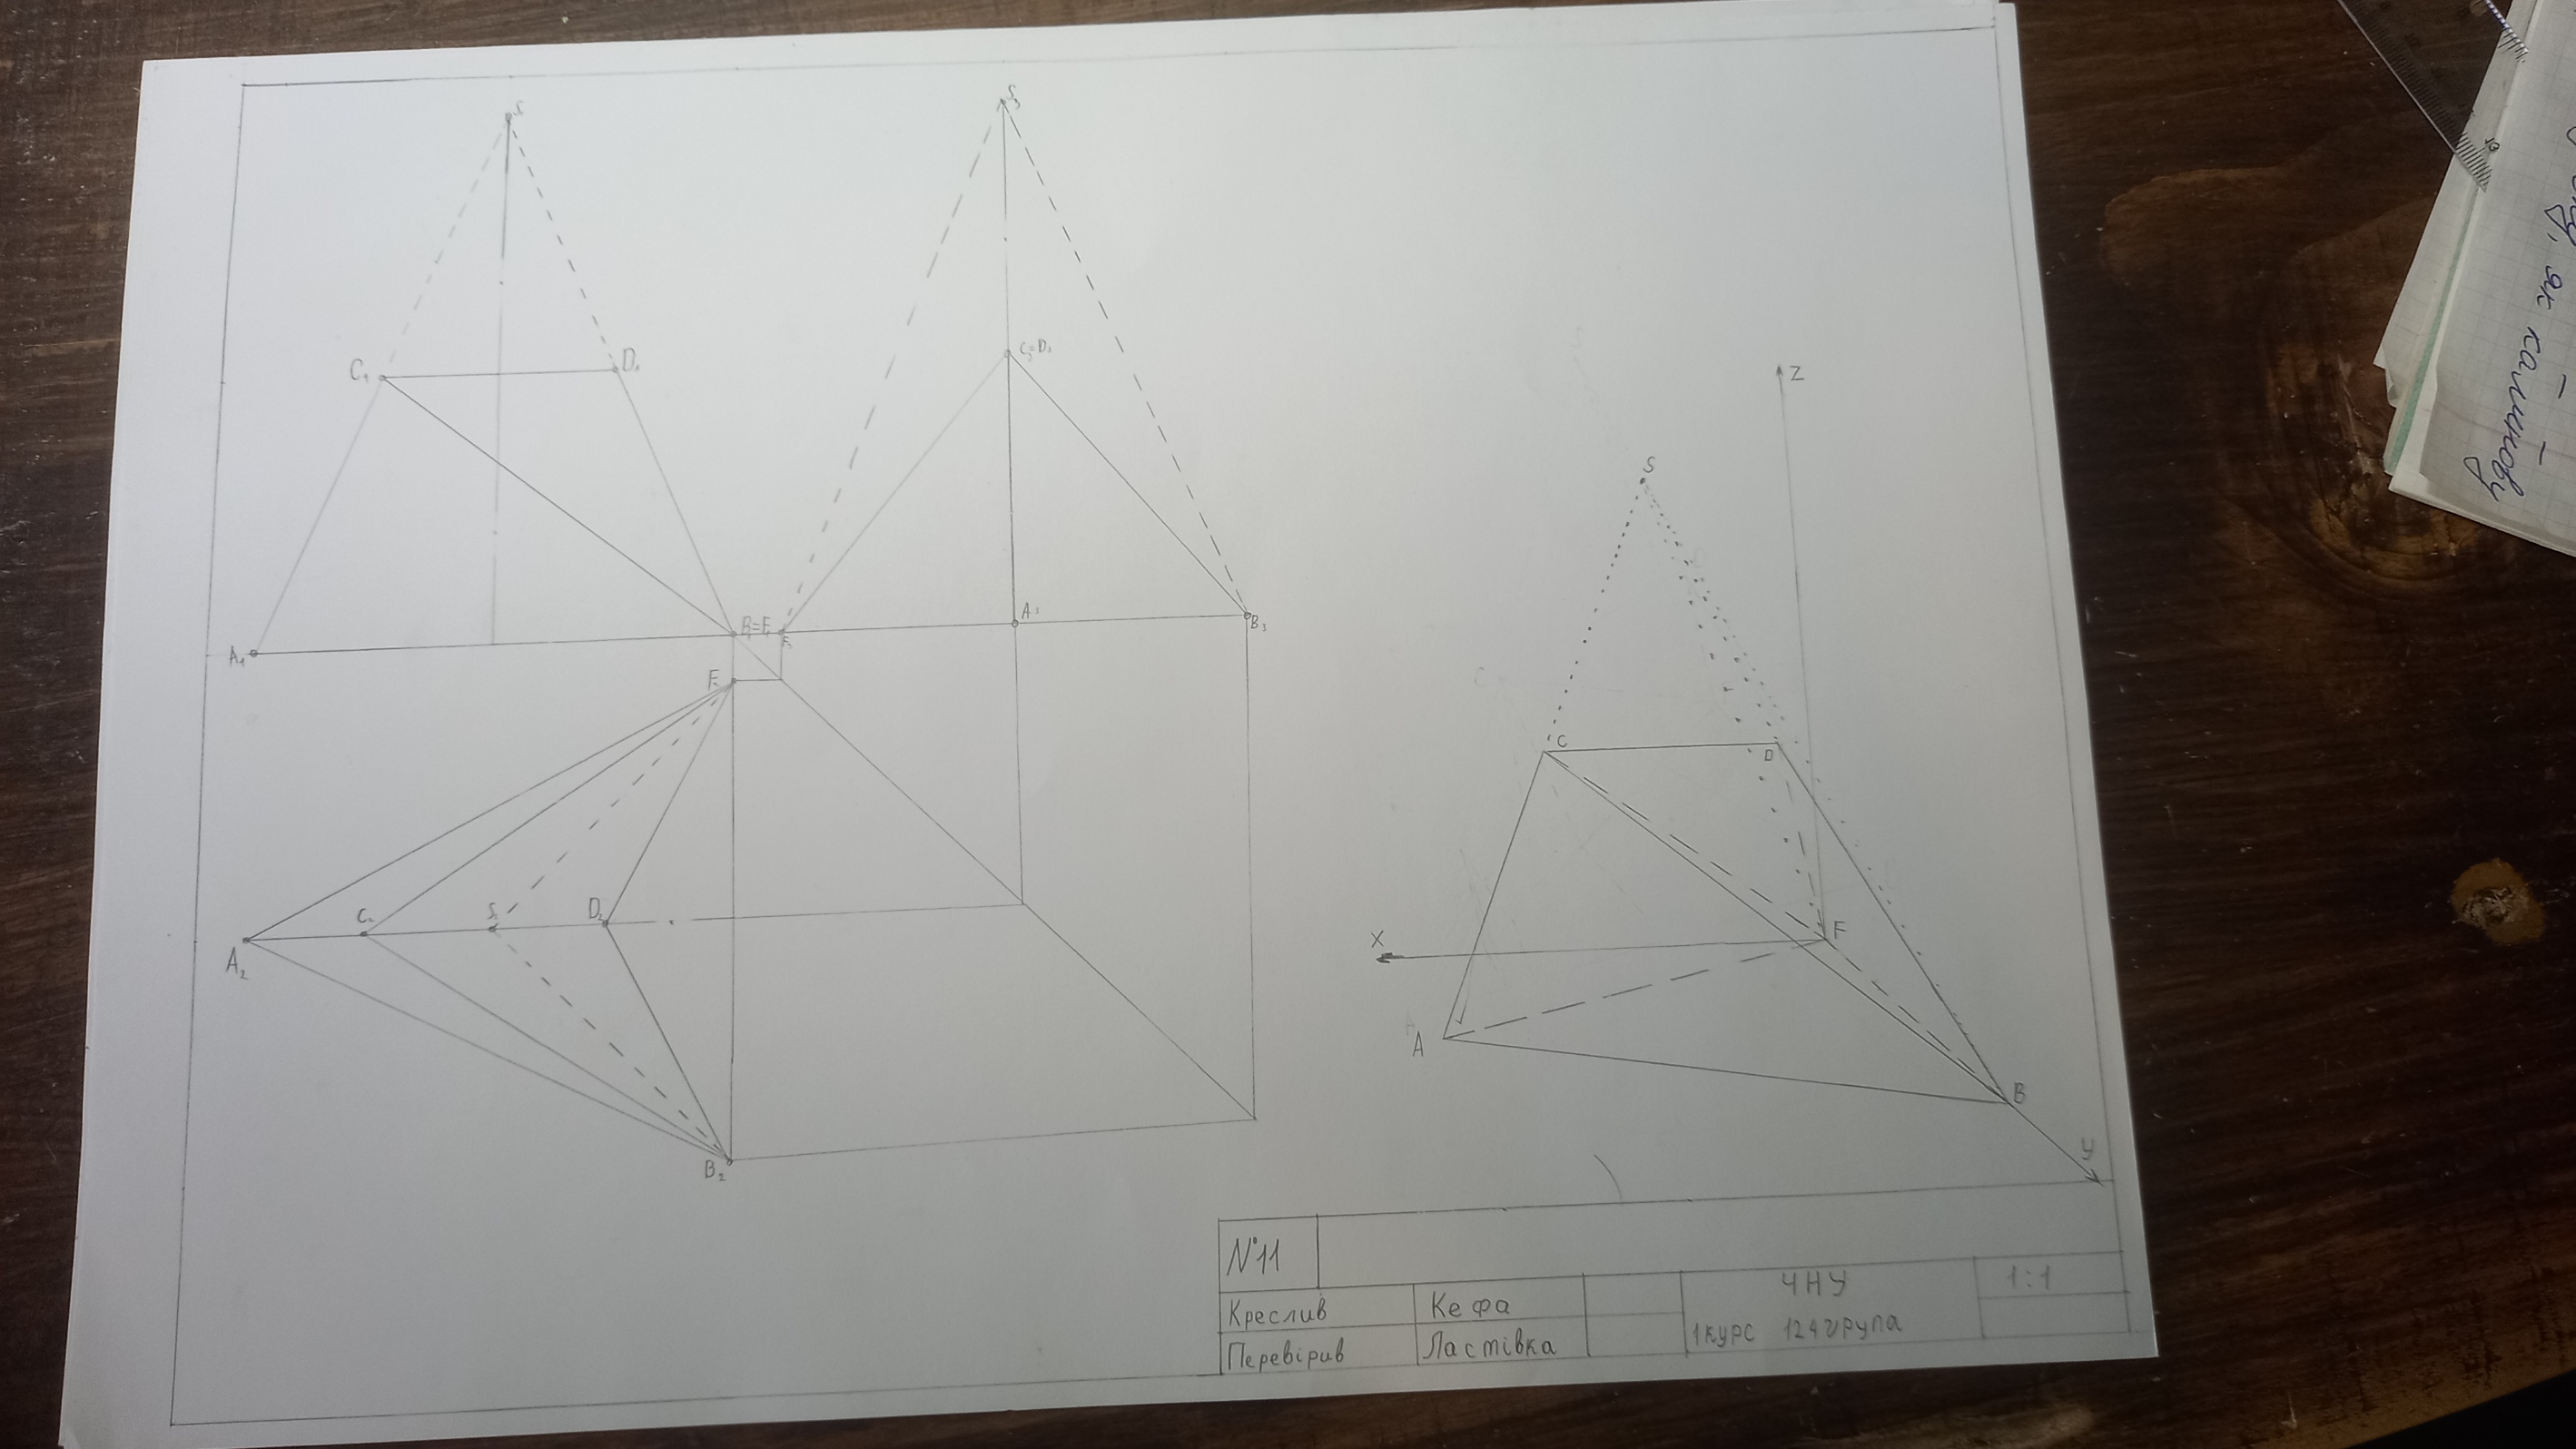 S₁
S₃
C₁
D₁
C₃≡D₃
A₁
B₁≡F₁
F₃
A₃
B₃
F₂
A₂
C₂
S₂
D₂
B₂
Z
S
C
D
X
F
A
B
y
№11
Креслив Кефа ЧНУ 1:1
Перевірив Ластівка 1курс 124група
як калинову